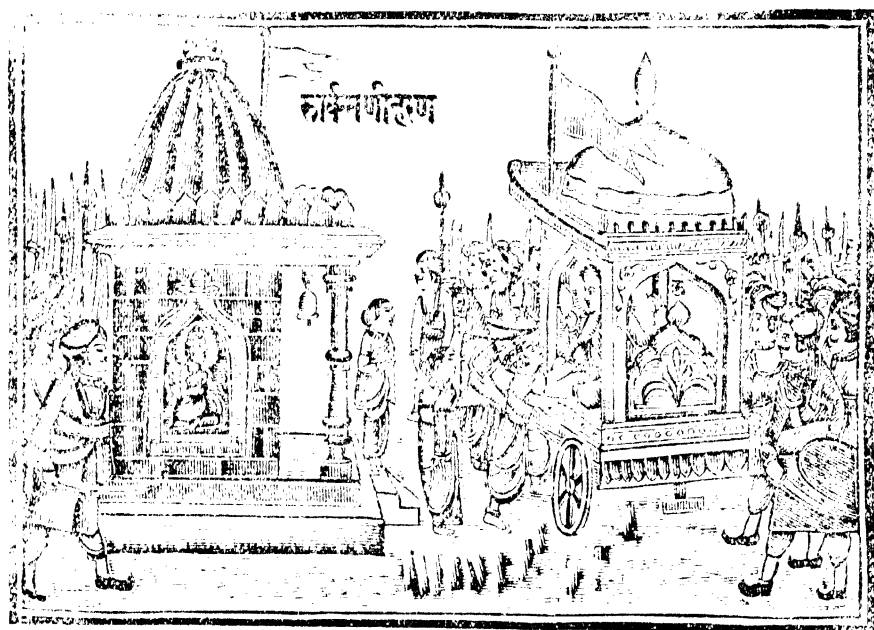 रुक्मिणीहरण